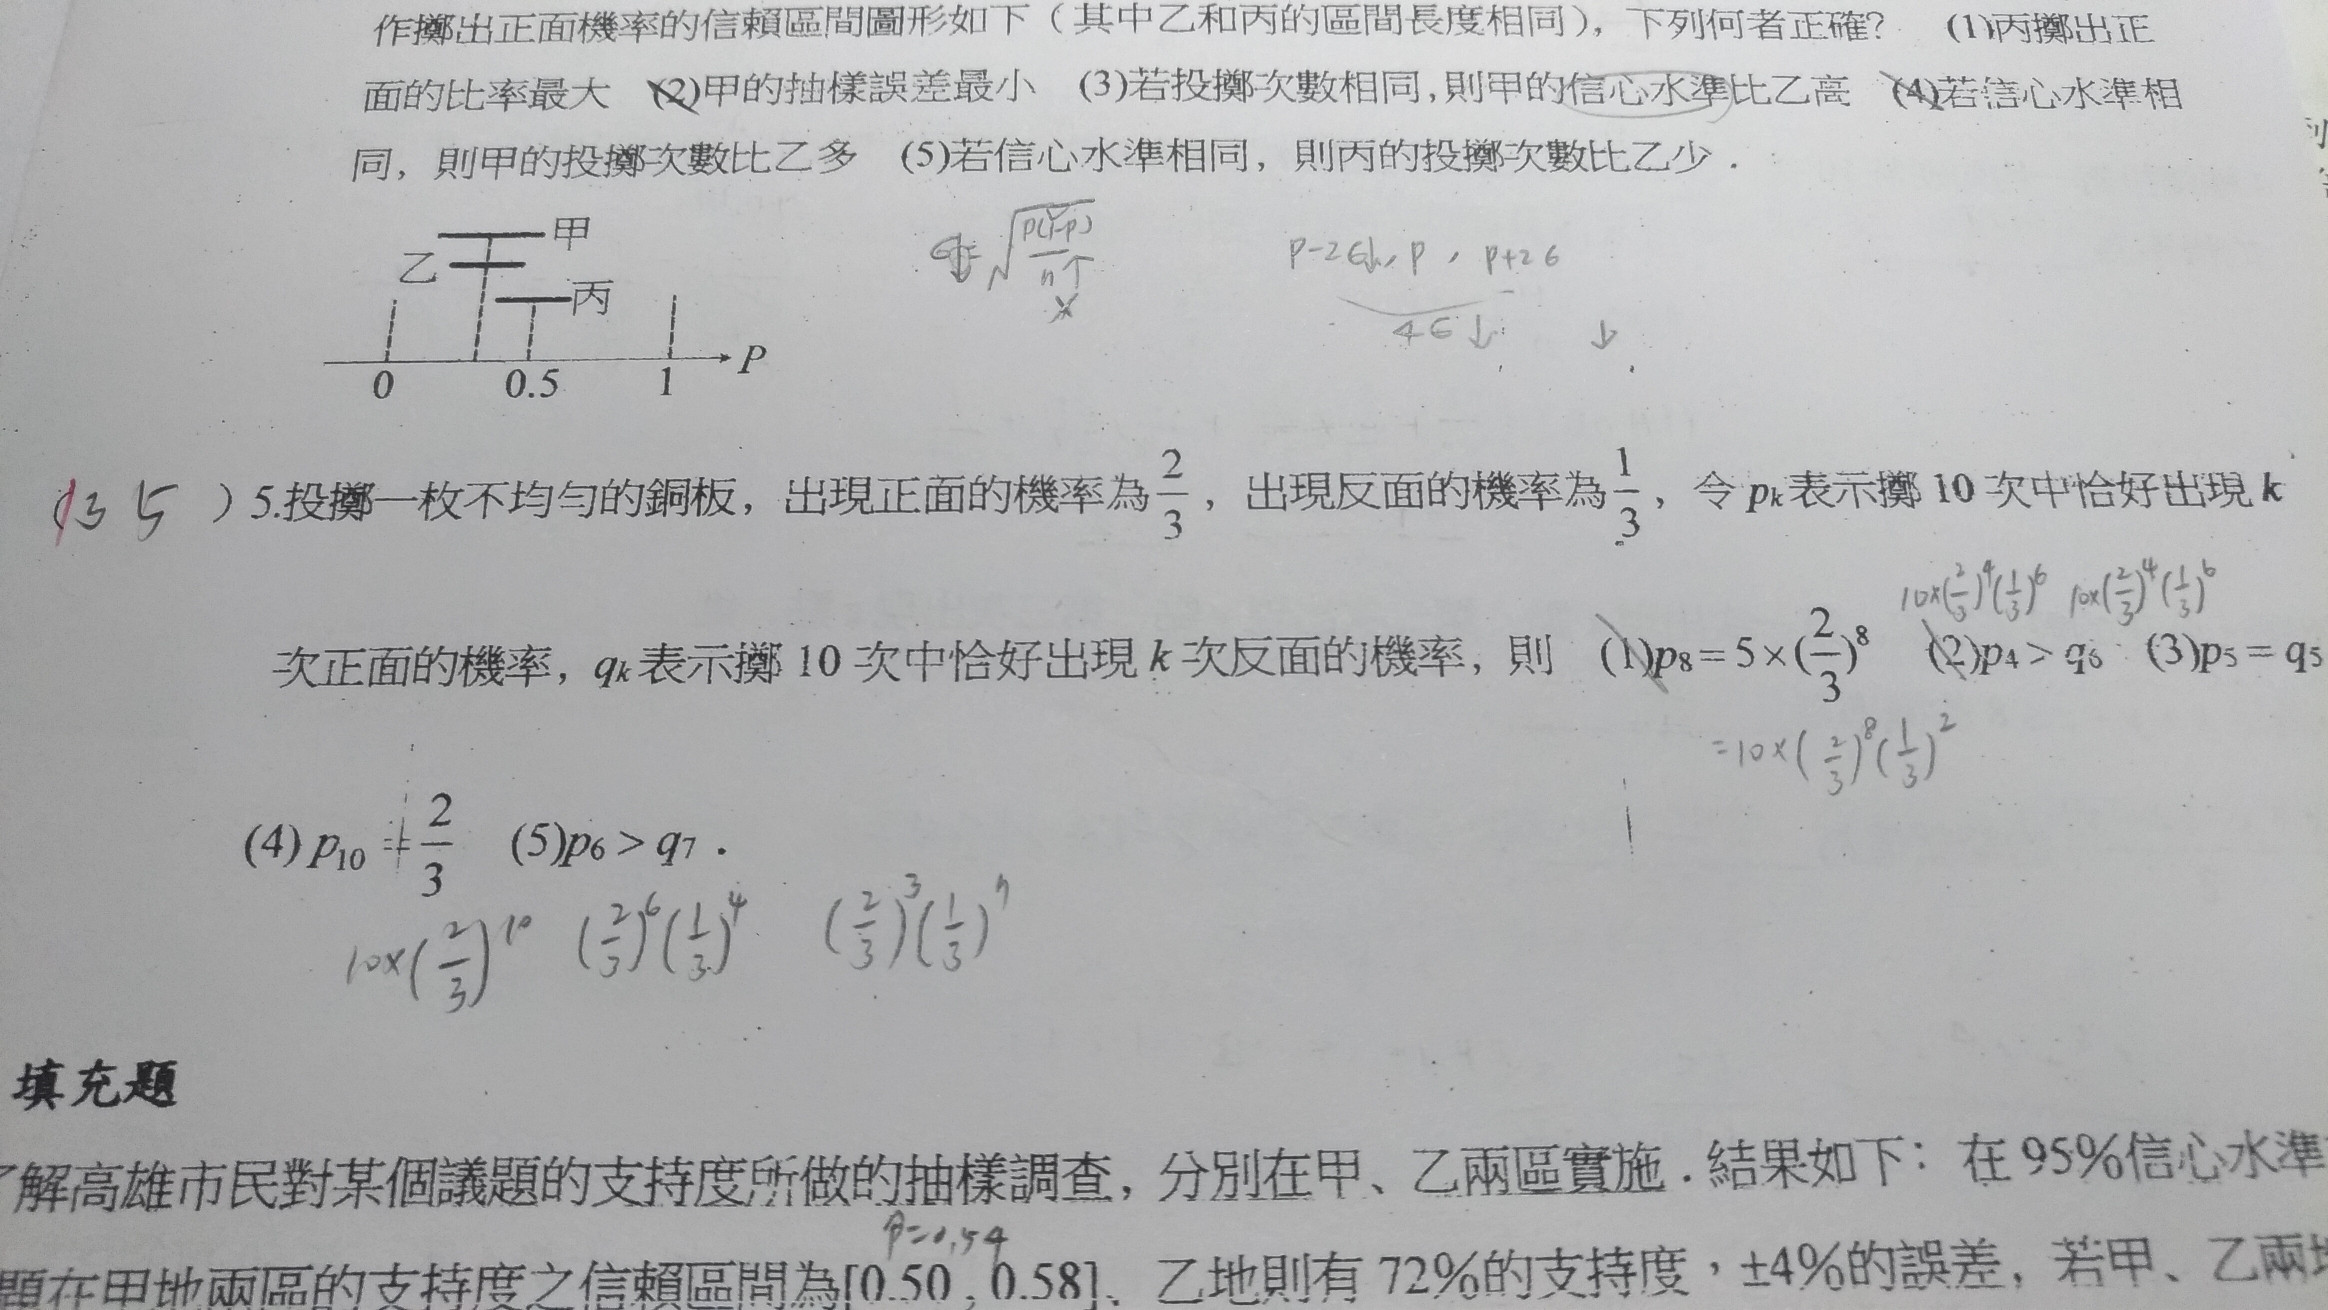 作擲出正面機率的信賴區間圖形如下（其中乙和丙的區間長度相同），下列何者正確？ (1)丙擲出正
面的比率最大 (2)甲的抽樣誤差最小 (3)若投擲次數相同，則甲的信心水準比乙高 (4)若信心水準相
同，則甲的投擲次數比乙多 (5)若信心水準相同，則丙的投擲次數比乙少．
甲
乙
丙
0 0.5 1 P
σ↓=√(p(1-p)/n↑)
x
p-2σ↓, p, p+2σ
4σ↓ ↓
(35 ) 5.投擲一枚不均勻的銅板，出現正面的機率為2/3，出現反面的機率為1/3，令 pk 表示擲 10 次中恰好出現 k
10×(2/3)^4(1/3)^6 10×(2/3)^4(1/3)^6
次正面的機率，qk 表示擲 10 次中恰好出現 k 次反面的機率，則 (1)p8=5×(2/3)^8 (2)p4>q6 (3)p5=q5
=10×(2/3)^8(1/3)^2
(4) p10 ≠ 2/3 (5)p6>q7．
10×(2/3)^10 (2/3)^6(1/3)^4 (2/3)^3(1/3)^7
填充題
了解高雄市民對某個議題的支持度所做的抽樣調查，分別在甲、乙兩區實施．結果如下：在 95%信心水準
p̂=0.54
題在甲地兩區的支持度之信賴區間為[0.50 , 0.58]、乙地則有 72%的支持度，±4%的誤差，若甲、乙兩